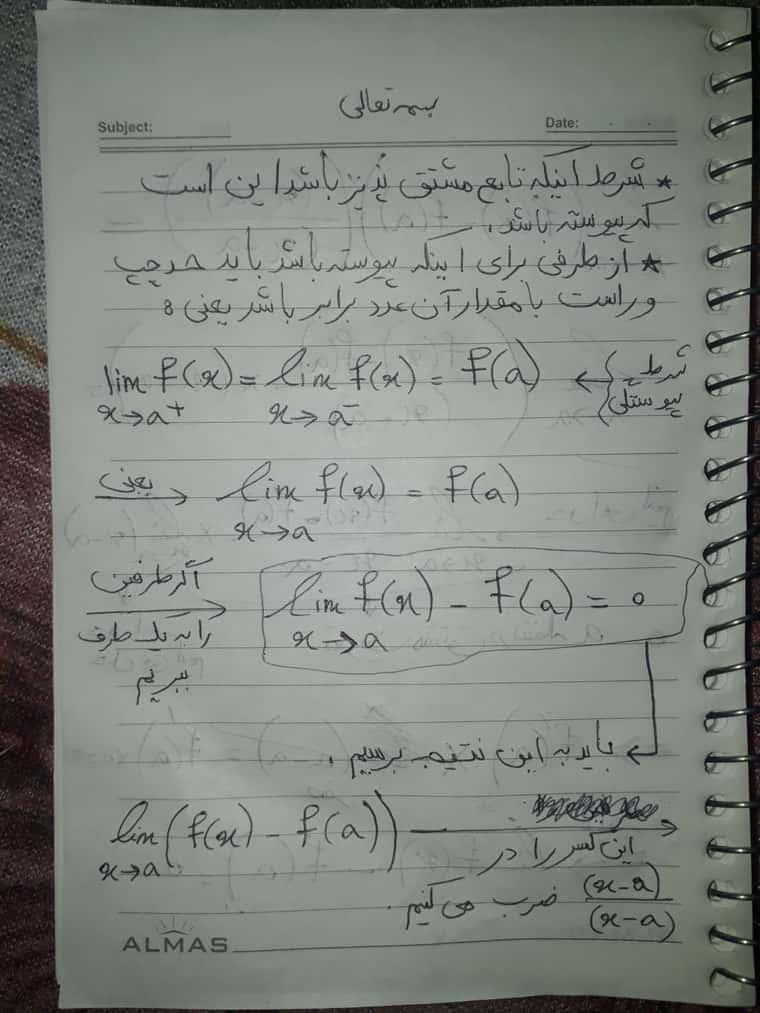 بسمه تعالی
Subject:
Date:
* شرط اینکه تابع مشتق پذیر باشد این است
که پیوسته باشد.
* از طرفی برای اینکه پیوسته باشد باید حد چپ
و راست با مقدار آن عدد برابر باشد یعنی :
lim f(x) = lim f(x) = f(a) ← شرط
x→a⁺ x→a⁻ پیوستگی
یعنی → lim f(x) = f(a)
x→a
اگر طرفین
lim f(x) - f(a) = 0
x→a
را به یک طرف
ببریم
باید به این نتیجه برسیم.
lim (f(x) - f(a)) →
x→a
این کسر را در
(x-a)/(x-a) ضرب می کنیم.
ALMAS